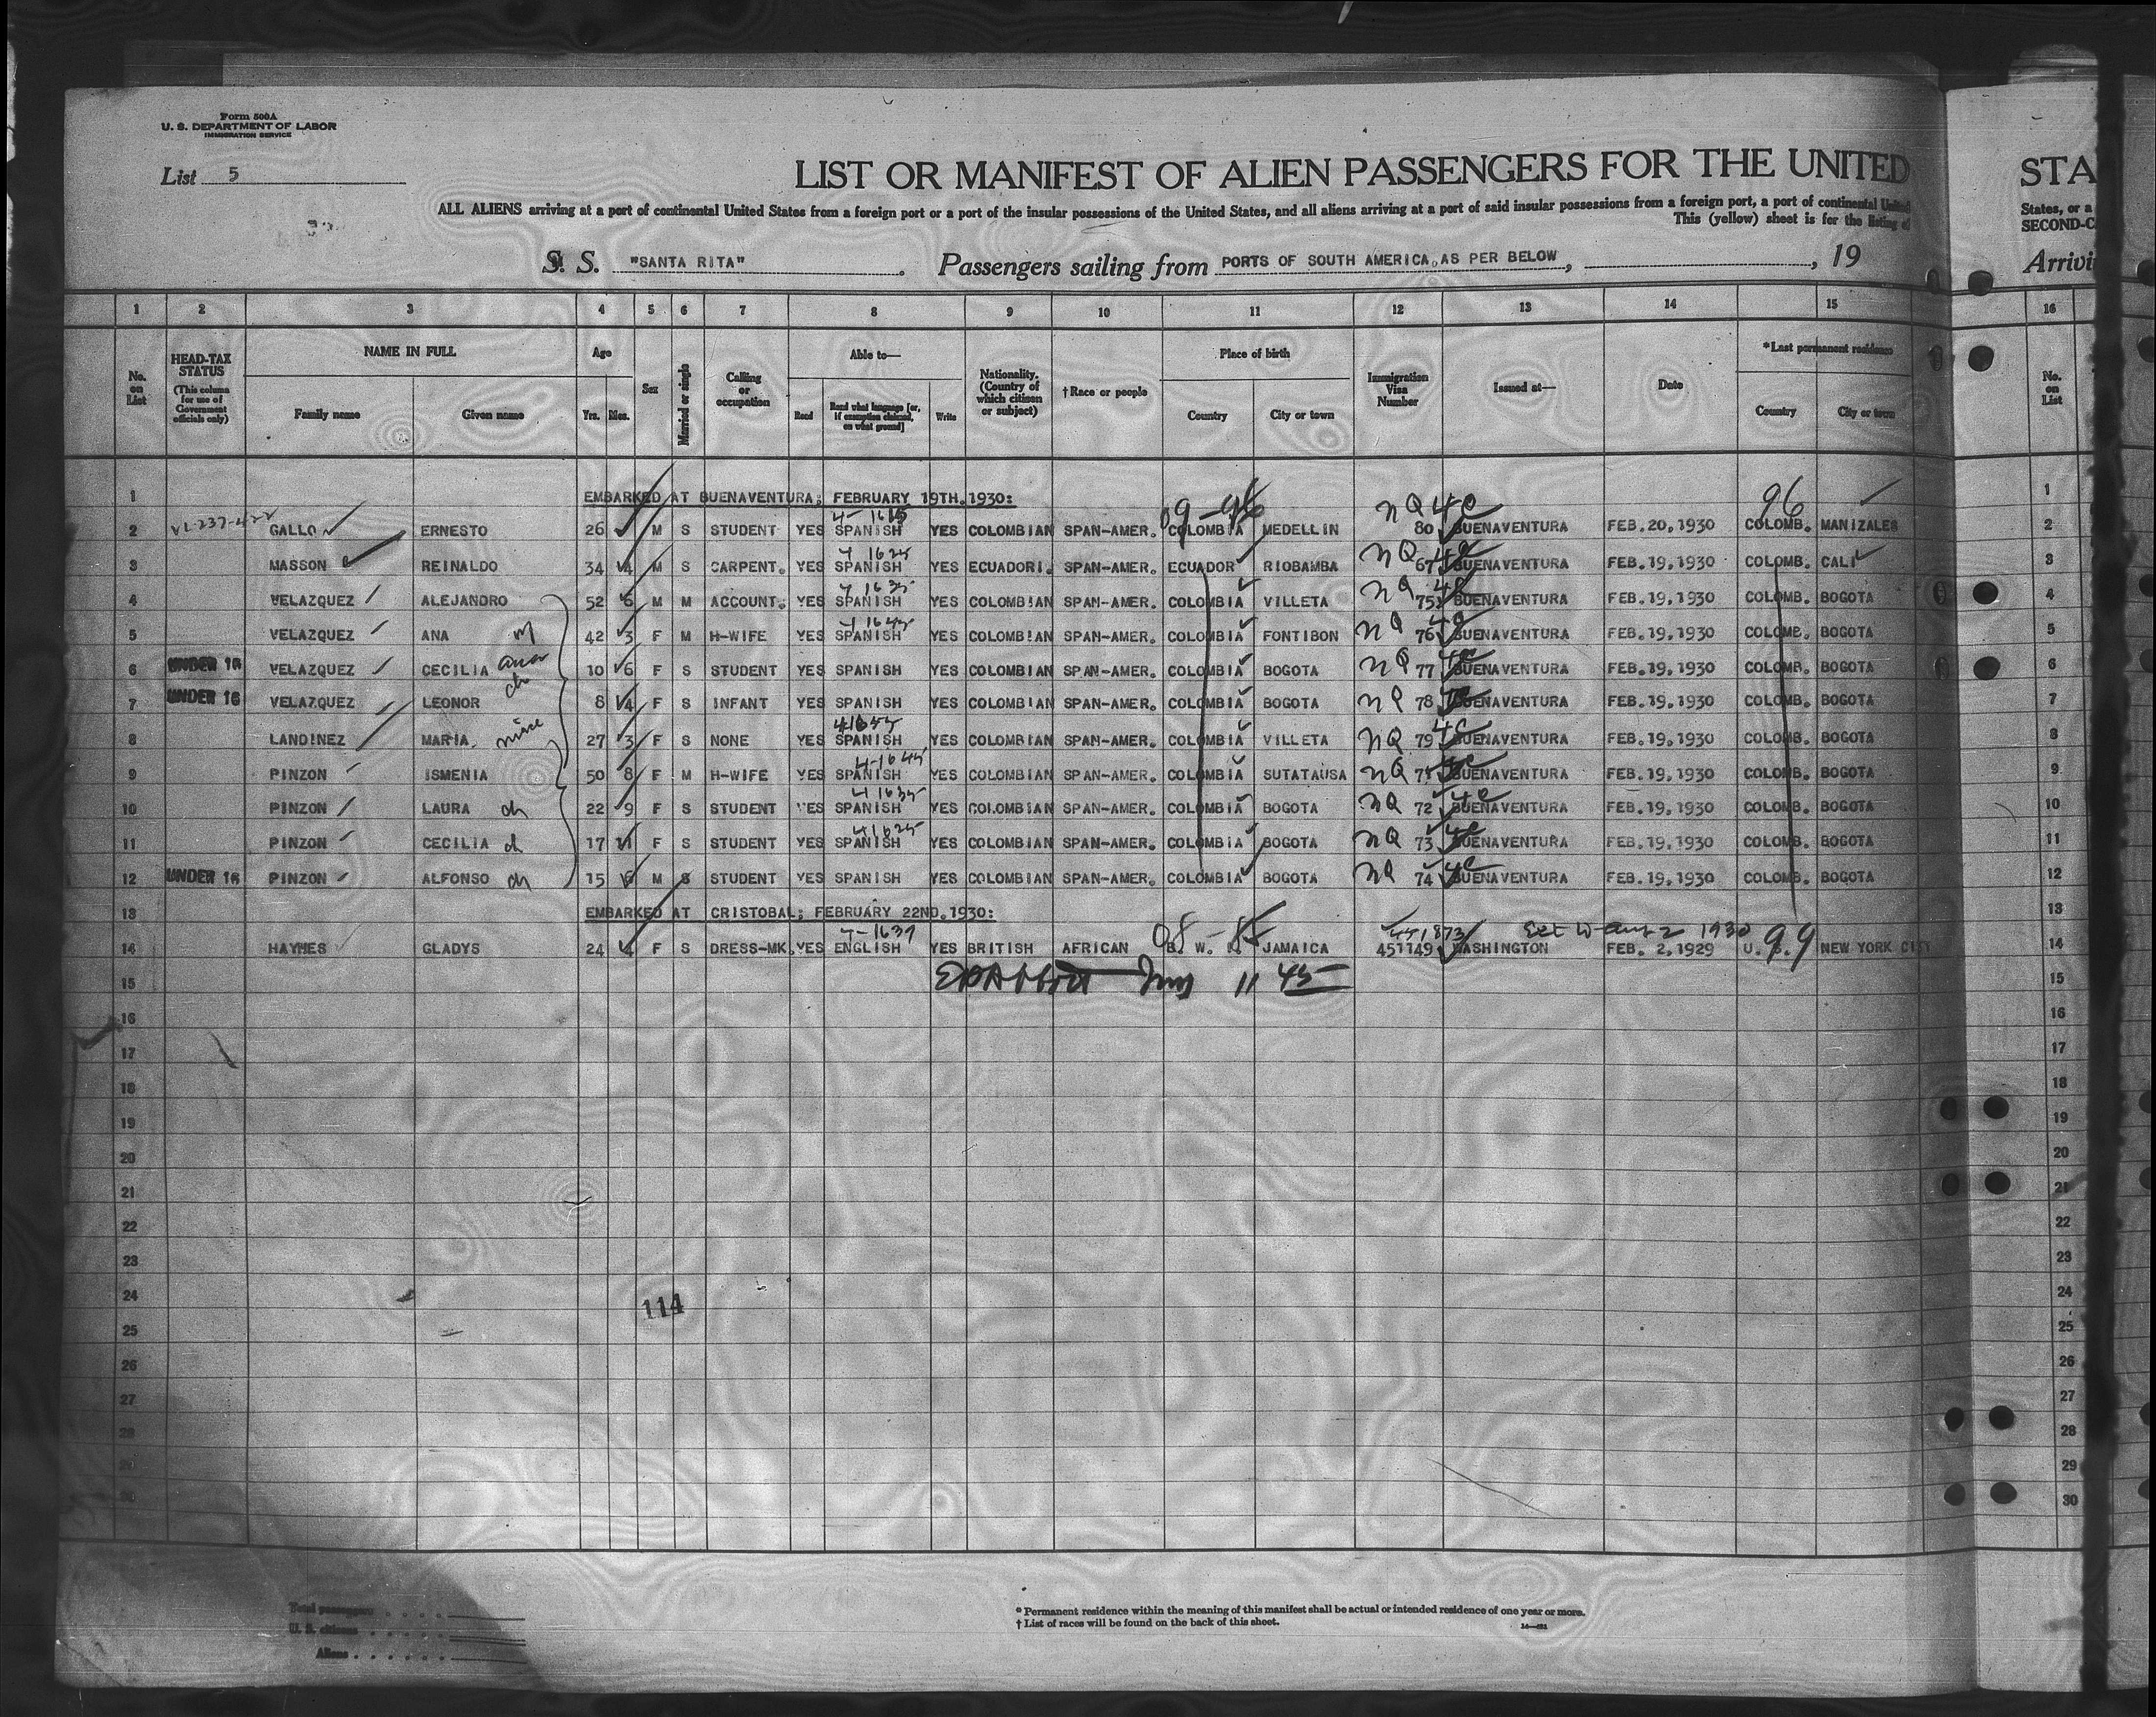 Form 500A
U. S. DEPARTMENT OF LABOR
IMMIGRATION SERVICE
List 5
LIST OR MANIFEST OF ALIEN PASSENGERS FOR THE UNITED
STA
ALL ALIENS arriving at a port of continental United States from a foreign port or a port of the insular possessions of the United States, and all aliens arriving at a port of said insular possessions from a foreign port, a port of continental United
States, or a
This (yellow) sheet is for the listing of
SECOND-C
S. S. "SANTA RITA" Passengers sailing from PORTS OF SOUTH AMERICA, AS PER BELOW, , 19
Arrivi
1 2 3 4 5 6 7 8 9 10 11 12 13 14 15 16
No. on List
HEAD-TAX STATUS (This column for use of Government officials only)
NAME IN FULL
Family name Given name
Age
Yrs. Mos.
Sex
Married or single
Calling or occupation
Able to—
Read Read what language [or, if exemption claimed, on what ground] Write
Nationality. (Country of which citizen or subject)
†Race or people
Place of birth
Country City or town
Immigration Visa Number
Issued at—
Date
*Last permanent residence
Country City or town
No. on List
1 EMBARKED AT BUENAVENTURA; FEBRUARY 19TH.1930: 1
4-1615 96
2 GALLO ERNESTO 26 M S STUDENT YES SPANISH YES COLOMBIAN SPAN-AMER. COLOMBIA MEDELLIN NQ 80 4C BUENAVENTURA FEB.20,1930 COLOMB. MANIZALES 2
4 1625
3 MASSON REINALDO 34 4 M S CARPENT. YES SPANISH YES ECUADORI. SPAN-AMER. ECUADOR RIOBAMBA NQ 67 4C BUENAVENTURA FEB.19,1930 COLOMB. CALI 3
4 1635
4 VELAZQUEZ ALEJANDRO 52 6 M M ACCOUNT. YES SPANISH YES COLOMBIAN SPAN-AMER. COLOMBIA VILLETA NQ 75 4C BUENAVENTURA FEB.19,1930 COLOMB. BOGOTA 4
4 1645
5 VELAZQUEZ ANA 42 3 F M H-WIFE YES SPANISH YES COLOMBIAN SPAN-AMER. COLOMBIA FONTIBON NQ 76 4C BUENAVENTURA FEB.19,1930 COLOMB. BOGOTA 5
6 UNDER 16 VELAZQUEZ CECILIA 10 6 F S STUDENT YES SPANISH YES COLOMBIAN SPAN-AMER. COLOMBIA BOGOTA NQ 77 4C BUENAVENTURA FEB.19,1930 COLOMB. BOGOTA 6
7 UNDER 16 VELAZQUEZ LEONOR ch 8 4 F S INFANT YES SPANISH YES COLOMBIAN SPAN-AMER. COLOMBIA BOGOTA NQ 78 BUENAVENTURA FEB.19,1930 COLOMB. BOGOTA 7
8 LANDINEZ MARIA. niece 27 3 F S NONE YES SPANISH YES COLOMBIAN SPAN-AMER. COLOMBIA VILLETA NQ 79 4C BUENAVENTURA FEB.19,1930 COLOMB. BOGOTA 8
4-1645
9 PINZON ISMENIA 50 8 F M H-WIFE YES SPANISH YES COLOMBIAN SPAN-AMER. COLOMBIA SUTATAUSA NQ BUENAVENTURA FEB.19,1930 COLOMB. BOGOTA 9
4 1635
10 PINZON LAURA ch 22 9 F S STUDENT YES SPANISH YES COLOMBIAN SPAN-AMER. COLOMBIA BOGOTA NQ 72 4C BUENAVENTURA FEB.19,1930 COLOMB. BOGOTA 10
4 1625
11 PINZON CECILIA ch 17 11 F S STUDENT YES SPANISH YES COLOMBIAN SPAN-AMER. COLOMBIA BOGOTA NQ 73 4C BUENAVENTURA FEB.19,1930 COLOMB. BOGOTA 11
12 UNDER 16 PINZON ALFONSO ch 15 6 M S STUDENT YES SPANISH YES COLOMBIAN SPAN-AMER. COLOMBIA BOGOTA NQ 74 4C BUENAVENTURA FEB.19,1930 COLOMB. BOGOTA 12
13 EMBARKED AT CRISTOBAL; FEBRUARY 22ND.1930: 13
14 HAYNES GLADYS 24 4 F S DRESS-MK. YES ENGLISH YES BRITISH AFRICAN B. W. I. JAMAICA 451149 WASHINGTON FEB. 2,1929 U. S. 99 NEW YORK CITY 14
15 11 45 15
16 16
17 17
18 18
19 19
20 20
21 21
22 22
23 23
24 24
114
25 25
26 26
27 27
28 28
29 29
30 30
Total passengers
U. S. citizens
Aliens
* Permanent residence within the meaning of this manifest shall be actual or intended residence of one year or more.
† List of races will be found on the back of this sheet.